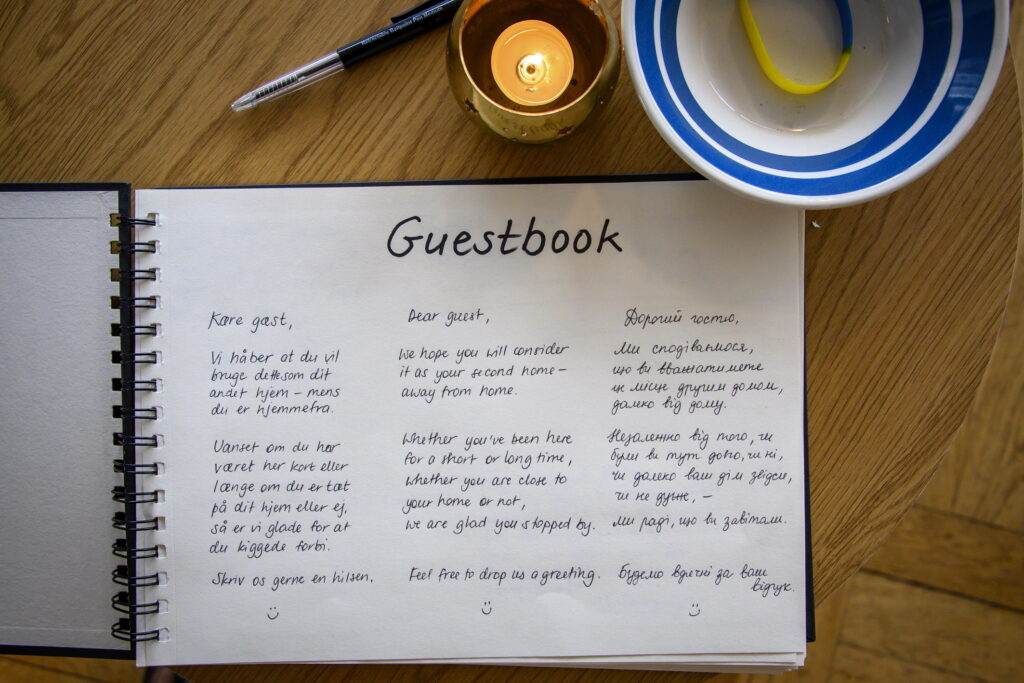 Retractable Ballpoint Pen Medium
Guestbook
Kære gæst,
Vi håber at du vil
bruge dette som dit
andet hjem – mens
du er hjemmefra.
Uanset om du har
været her kort eller
længe om du er tæt
på dit hjem eller ej,
så er vi glade for at
du kiggede forbi.
Skriv os gerne en hilsen.
Dear guest,
We hope you will consider
it as your second home –
away from home.
Whether you've been here
for a short or long time,
whether you are close to
your home or not,
we are glad you stopped by.
Feel free to drop us a greeting.
Дорогий гостю,
Ми сподіваємося,
що ви вважатимете
це місце другим домом,
далеко від дому.
Незалежно від того, чи
були ви тут довго, чи ні,
чи далеко ваш дім звідси,
чи не дуже, –
ми раді, що ви завітали.
Будемо вдячні за ваш
відгук.